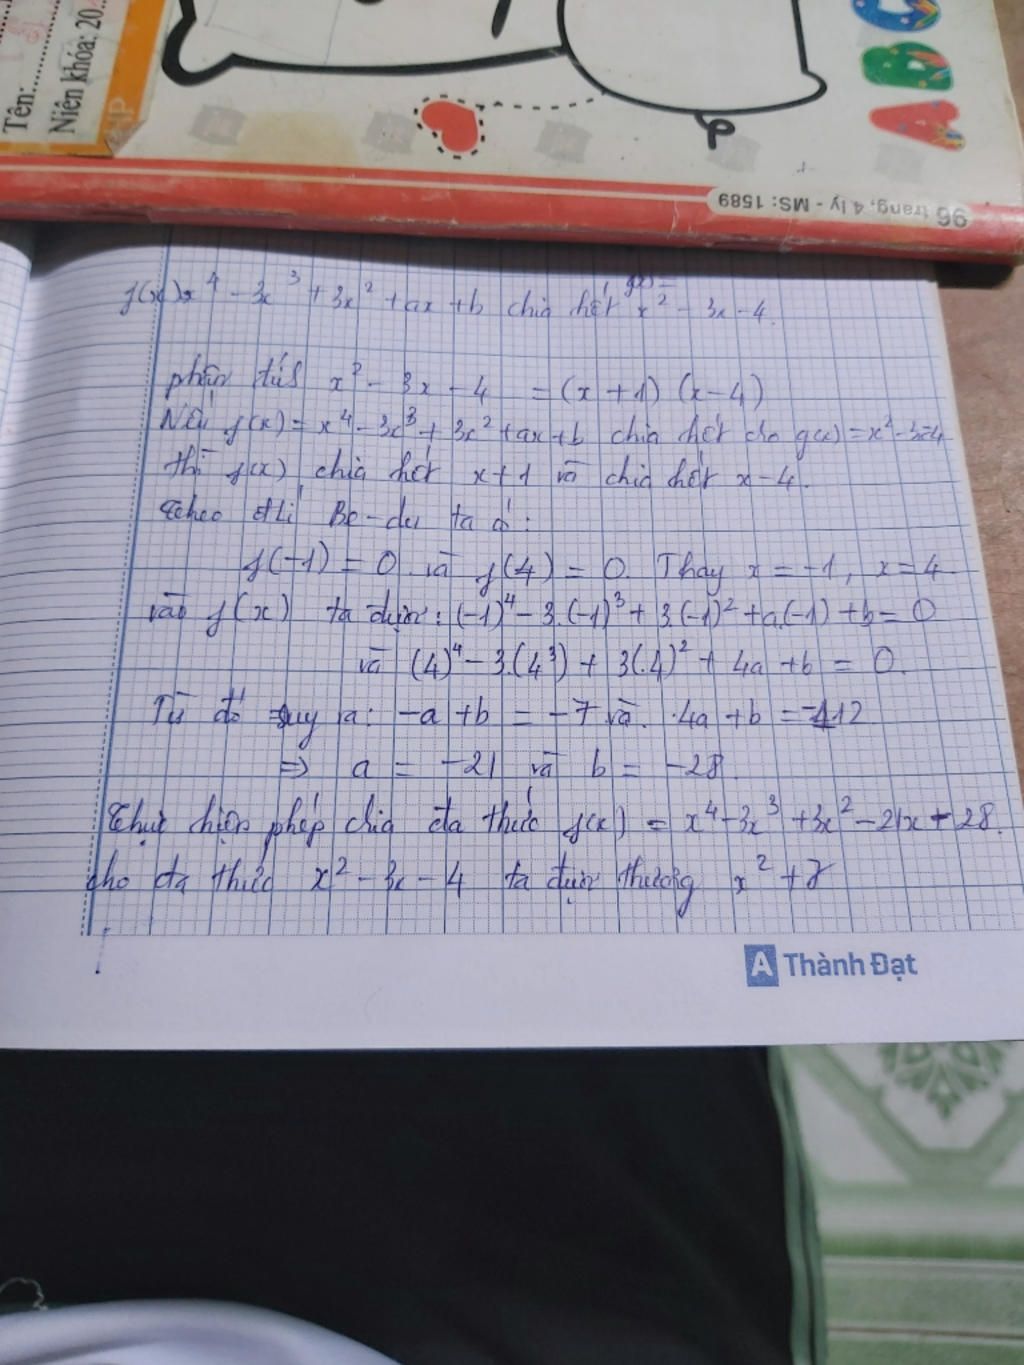 Tên:..............
Niên khóa: 20...
96 trang, 4 ly - MS: 1589
f(x) x⁴ - 3x³ + 3x² + ax + b chia hết x² - 3x - 4.
g(x) =
phân tích x² - 3x - 4 = (x + 1) (x - 4)
Nếu f(x) = x⁴ - 3x³ + 3x² + ax + b chia hết cho g(x) = x² - 3x - 4
thì f(x) chia hết x + 1 và chia hết x - 4.
Theo đlí Bơ-du ta có:
f(-1) = 0 và f(4) = 0. Thay x = -1, x = 4
vào f(x) ta được: (-1)⁴ - 3.(-1)³ + 3.(-1)² + a.(-1) + b = 0
và (4)⁴ - 3.(4³) + 3(.4)² + 4a + b = 0.
Từ đó suy ra: -a + b = -7 và 4a + b = -112
⇒ a = -21 và b = -28
Thực hiện phép chia đa thức f(x) = x⁴ - 3x³ + 3x² - 21x - 28.
cho đa thức x² - 3x - 4 ta được thương x² + 7
A Thành Đạt